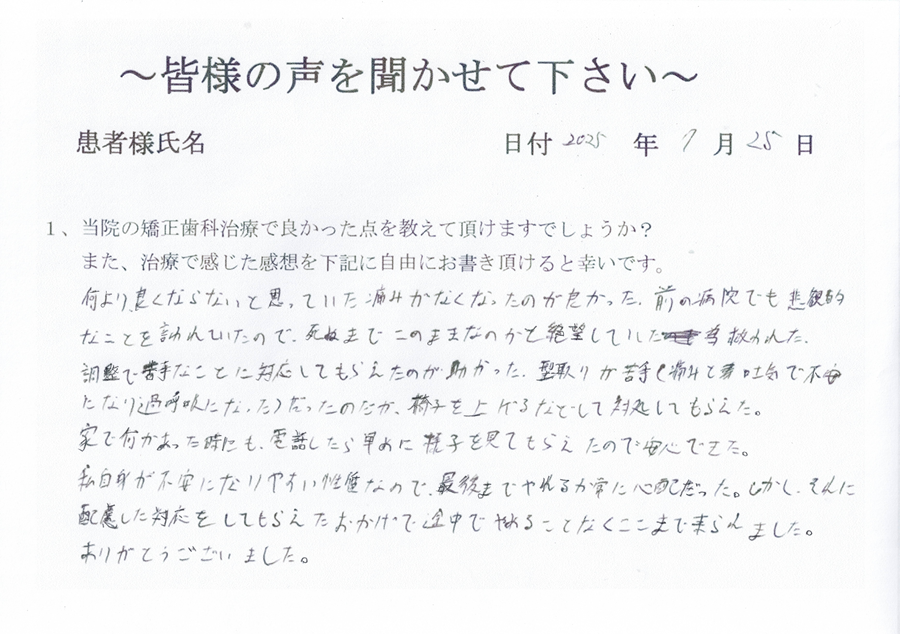 ～皆様の声を聞かせて下さい～
患者様氏名
日付 2025 年 7 月 25 日
1、当院の矯正歯科治療で良かった点を教えて頂けますでしょうか？
また、治療で感じた感想を下記に自由にお書き頂けると幸いです。
何より良くならないと思っていた痛みがなくなったのが良かった。前の病院でも悲観的
なことを言われていたので、死ぬまでこのままなのかと絶望していた 救われた。
調整で苦手なことに対応してもらえたのが助かった。型取りが苦手（痛みと 吐気で不安
になり過呼吸になった）だったのだが、椅子を上げるなどして対処してもらえた。
家で何かあった時にも、電話したら早めに様子を見てもらえたので安心できた。
私自身が不安になりやすい性質なので、最後までやれるか常に心配だった。しかし、それに
配慮した対応をしてもらえたおかげで途中でやめることなくここまで来られました。
ありがとうございました。